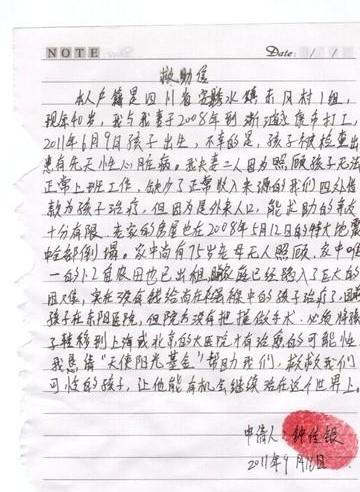 NOTE Date: / /
救助信
本人户籍是四川省安县水镇东风村1组,
现年40岁,我与我妻子2008年到浙江打工,
2011年6月9日孩子出生,不幸的是,孩子被检查出
患有先天性心脏病。我夫妻二人因为照顾孩子无法
正常上班工作,缺少了正常收入来源的我们四处借
款为孩子治疗,但因为是外来人口,能求助的亲友
十分有限,老家的房屋也在2008年5月12日的特大地震
中全部倒塌。家中尚有75岁老母无人照顾,家中唯
一的1.2亩农田也已出租,家庭已经陷入了巨大的
困难,实在没有钱给尚在襁褓中的孩子治疗了,目前
孩子在东阳医院,但院方没有把握做手术,必须将孩
子转移到上海或北京的大医院才有治愈的可能性
我恳请“天使阳光基金”帮助我们,救救我们
可怜的孩子,让他能有机会继续活在这个世界上。
申请人:钟佳银
2011年9月16日